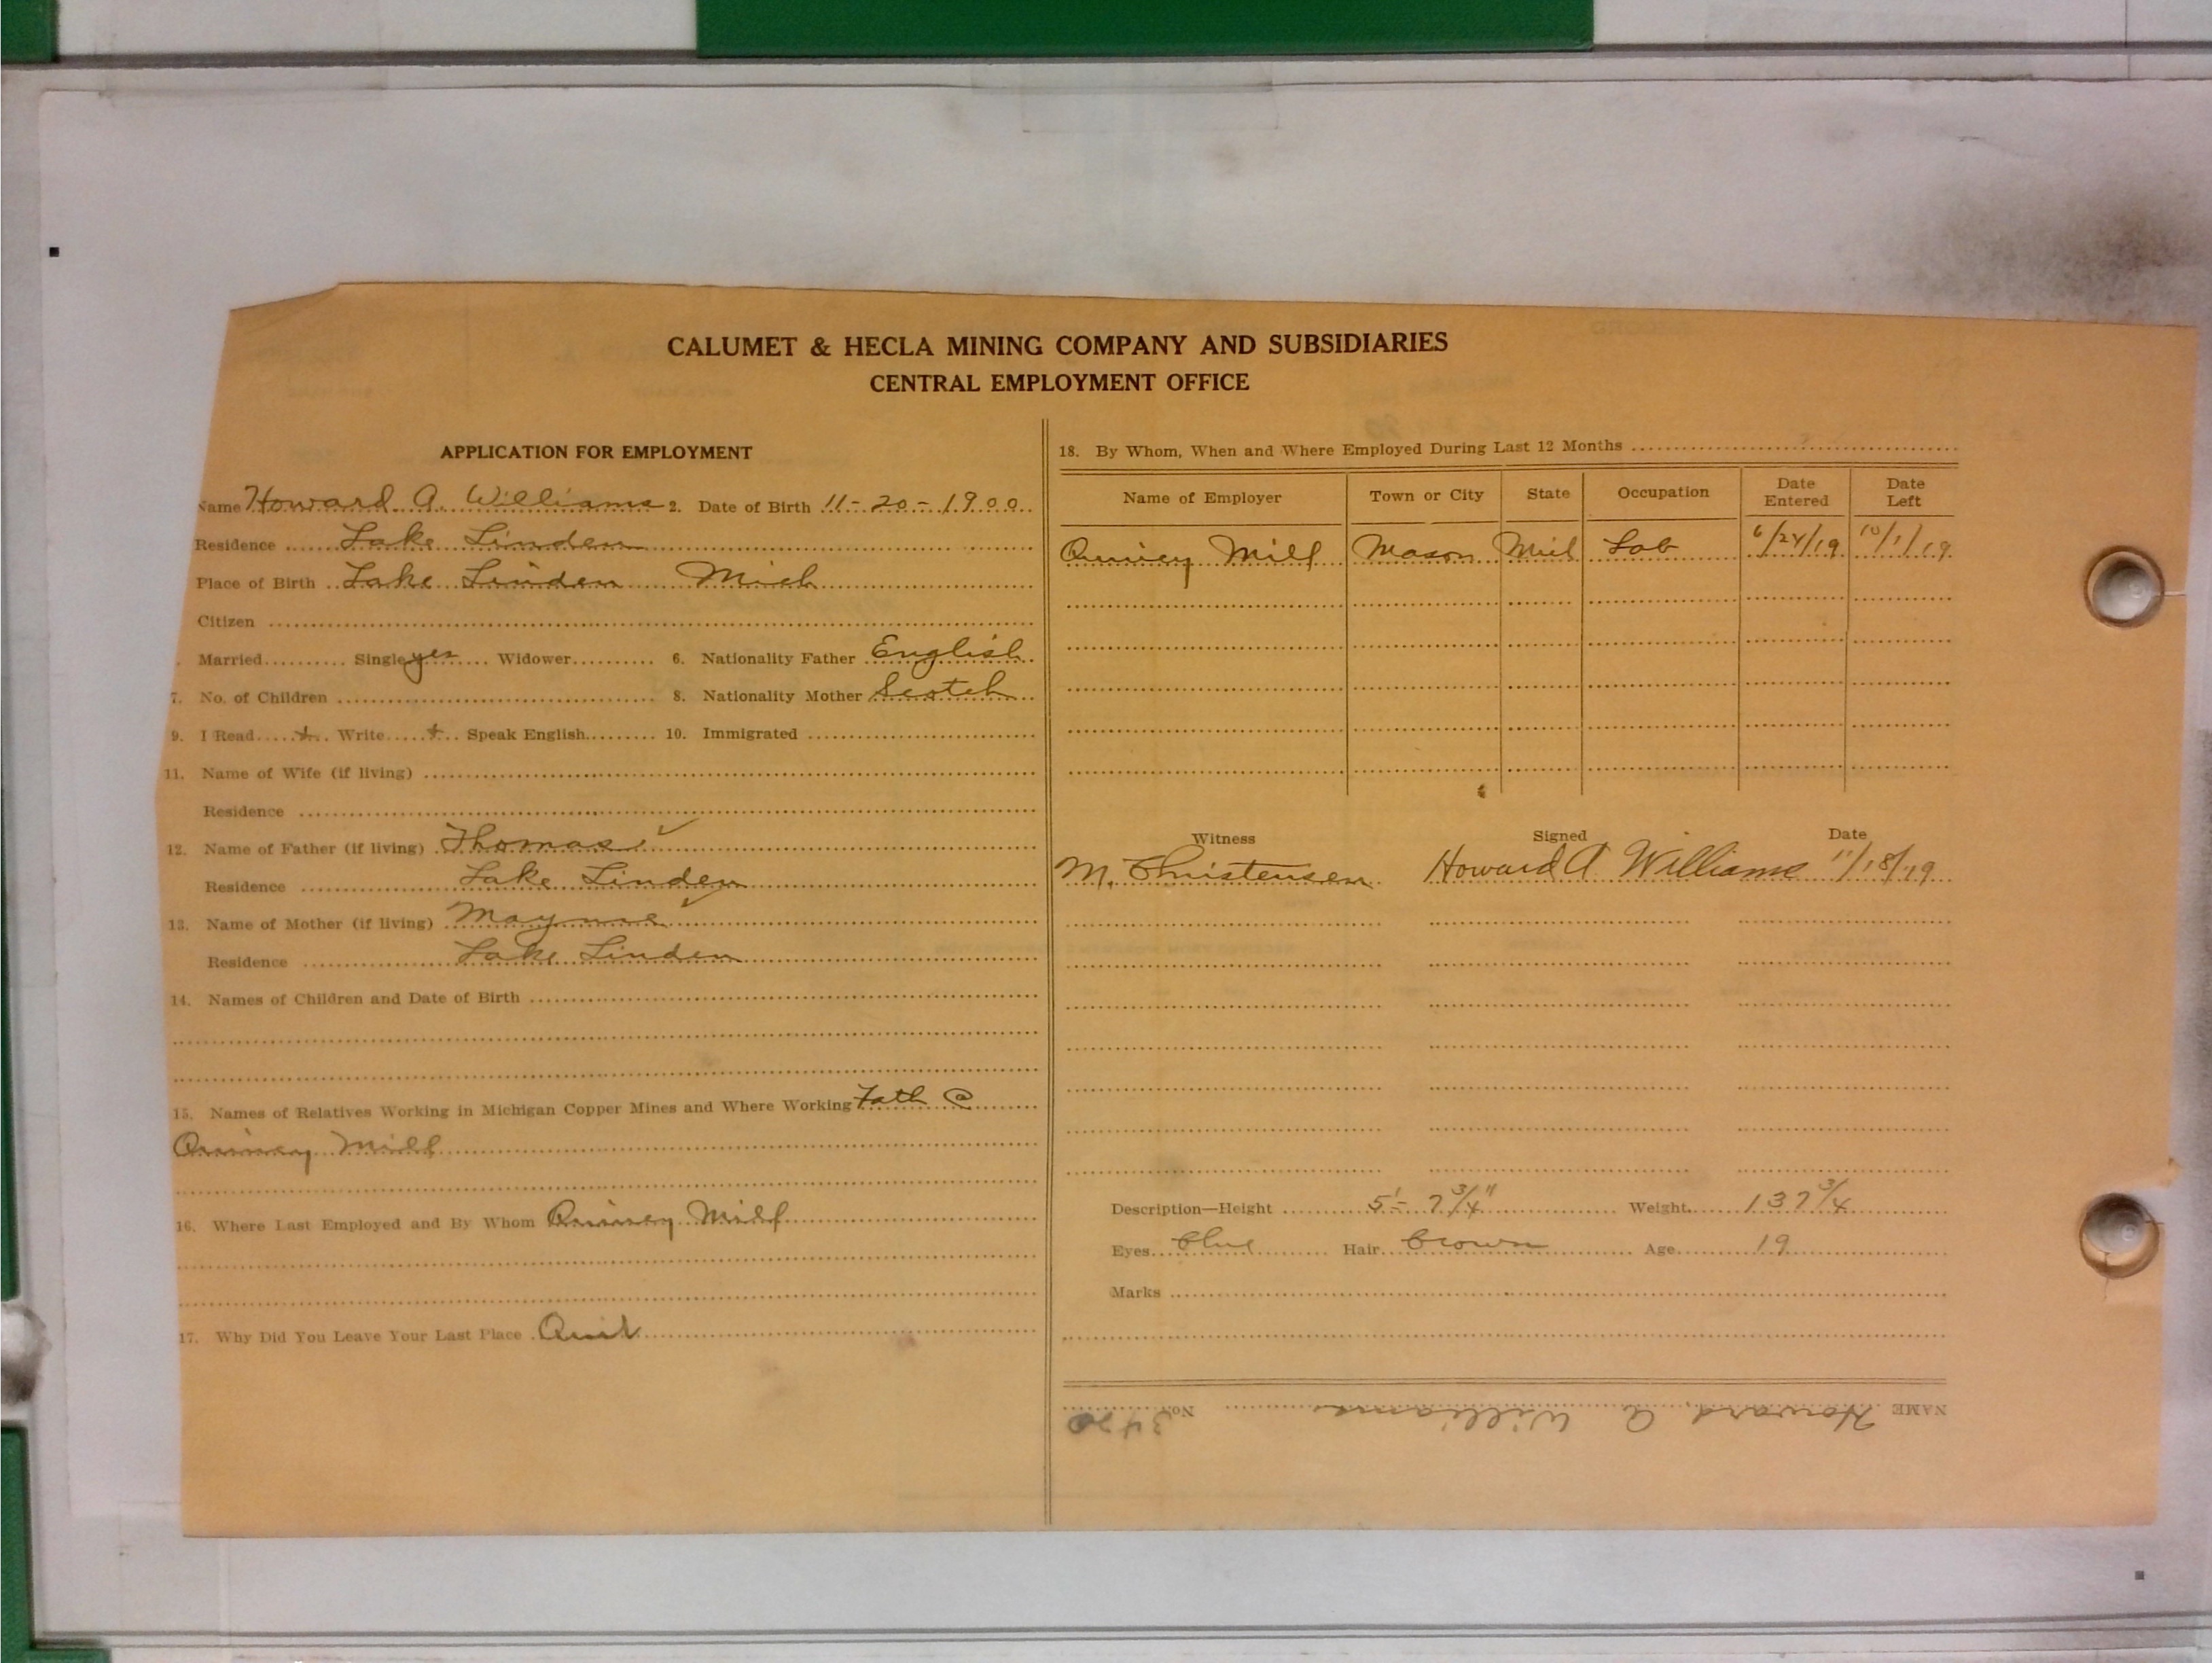 CALUMET & HECLA MINING COMPANY AND SUBSIDIARIES
CENTRAL EMPLOYMENT OFFICE
APPLICATION FOR EMPLOYMENT
Name Howard A. Williams 2. Date of Birth 11-20-1900
Residence Lake Linden
Place of Birth Lake Linden Mich
Citizen
Married Single yes Widower 6. Nationality Father English
7. No. of Children 8. Nationality Mother Scotch
9. I Read + Write + Speak English 10. Immigrated
11. Name of Wife (if living)
Residence
12. Name of Father (if living) Thomas ✓
Residence Lake Linden
13. Name of Mother (if living) Mayme ✓
Residence Lake Linden
14. Names of Children and Date of Birth
15. Names of Relatives Working in Michigan Copper Mines and Where Working Fath @
Quincy Mill
16. Where Last Employed and By Whom Quincy Mill
17. Why Did You Leave Your Last Place Quit
18. By Whom, When and Where Employed During Last 12 Months
Name of Employer Town or City State Occupation Date Entered Date Left
Quincy Mill Mason Mich Lab 6/24/19 10/1/19
Witness Signed Date
M. Christensen Howard A Williams 11/18/19
Description—Height 5'-7 3/4" Weight 137 3/4
Eyes blue Hair brown Age 19
Marks
NAME Howard A Williams No. 3420